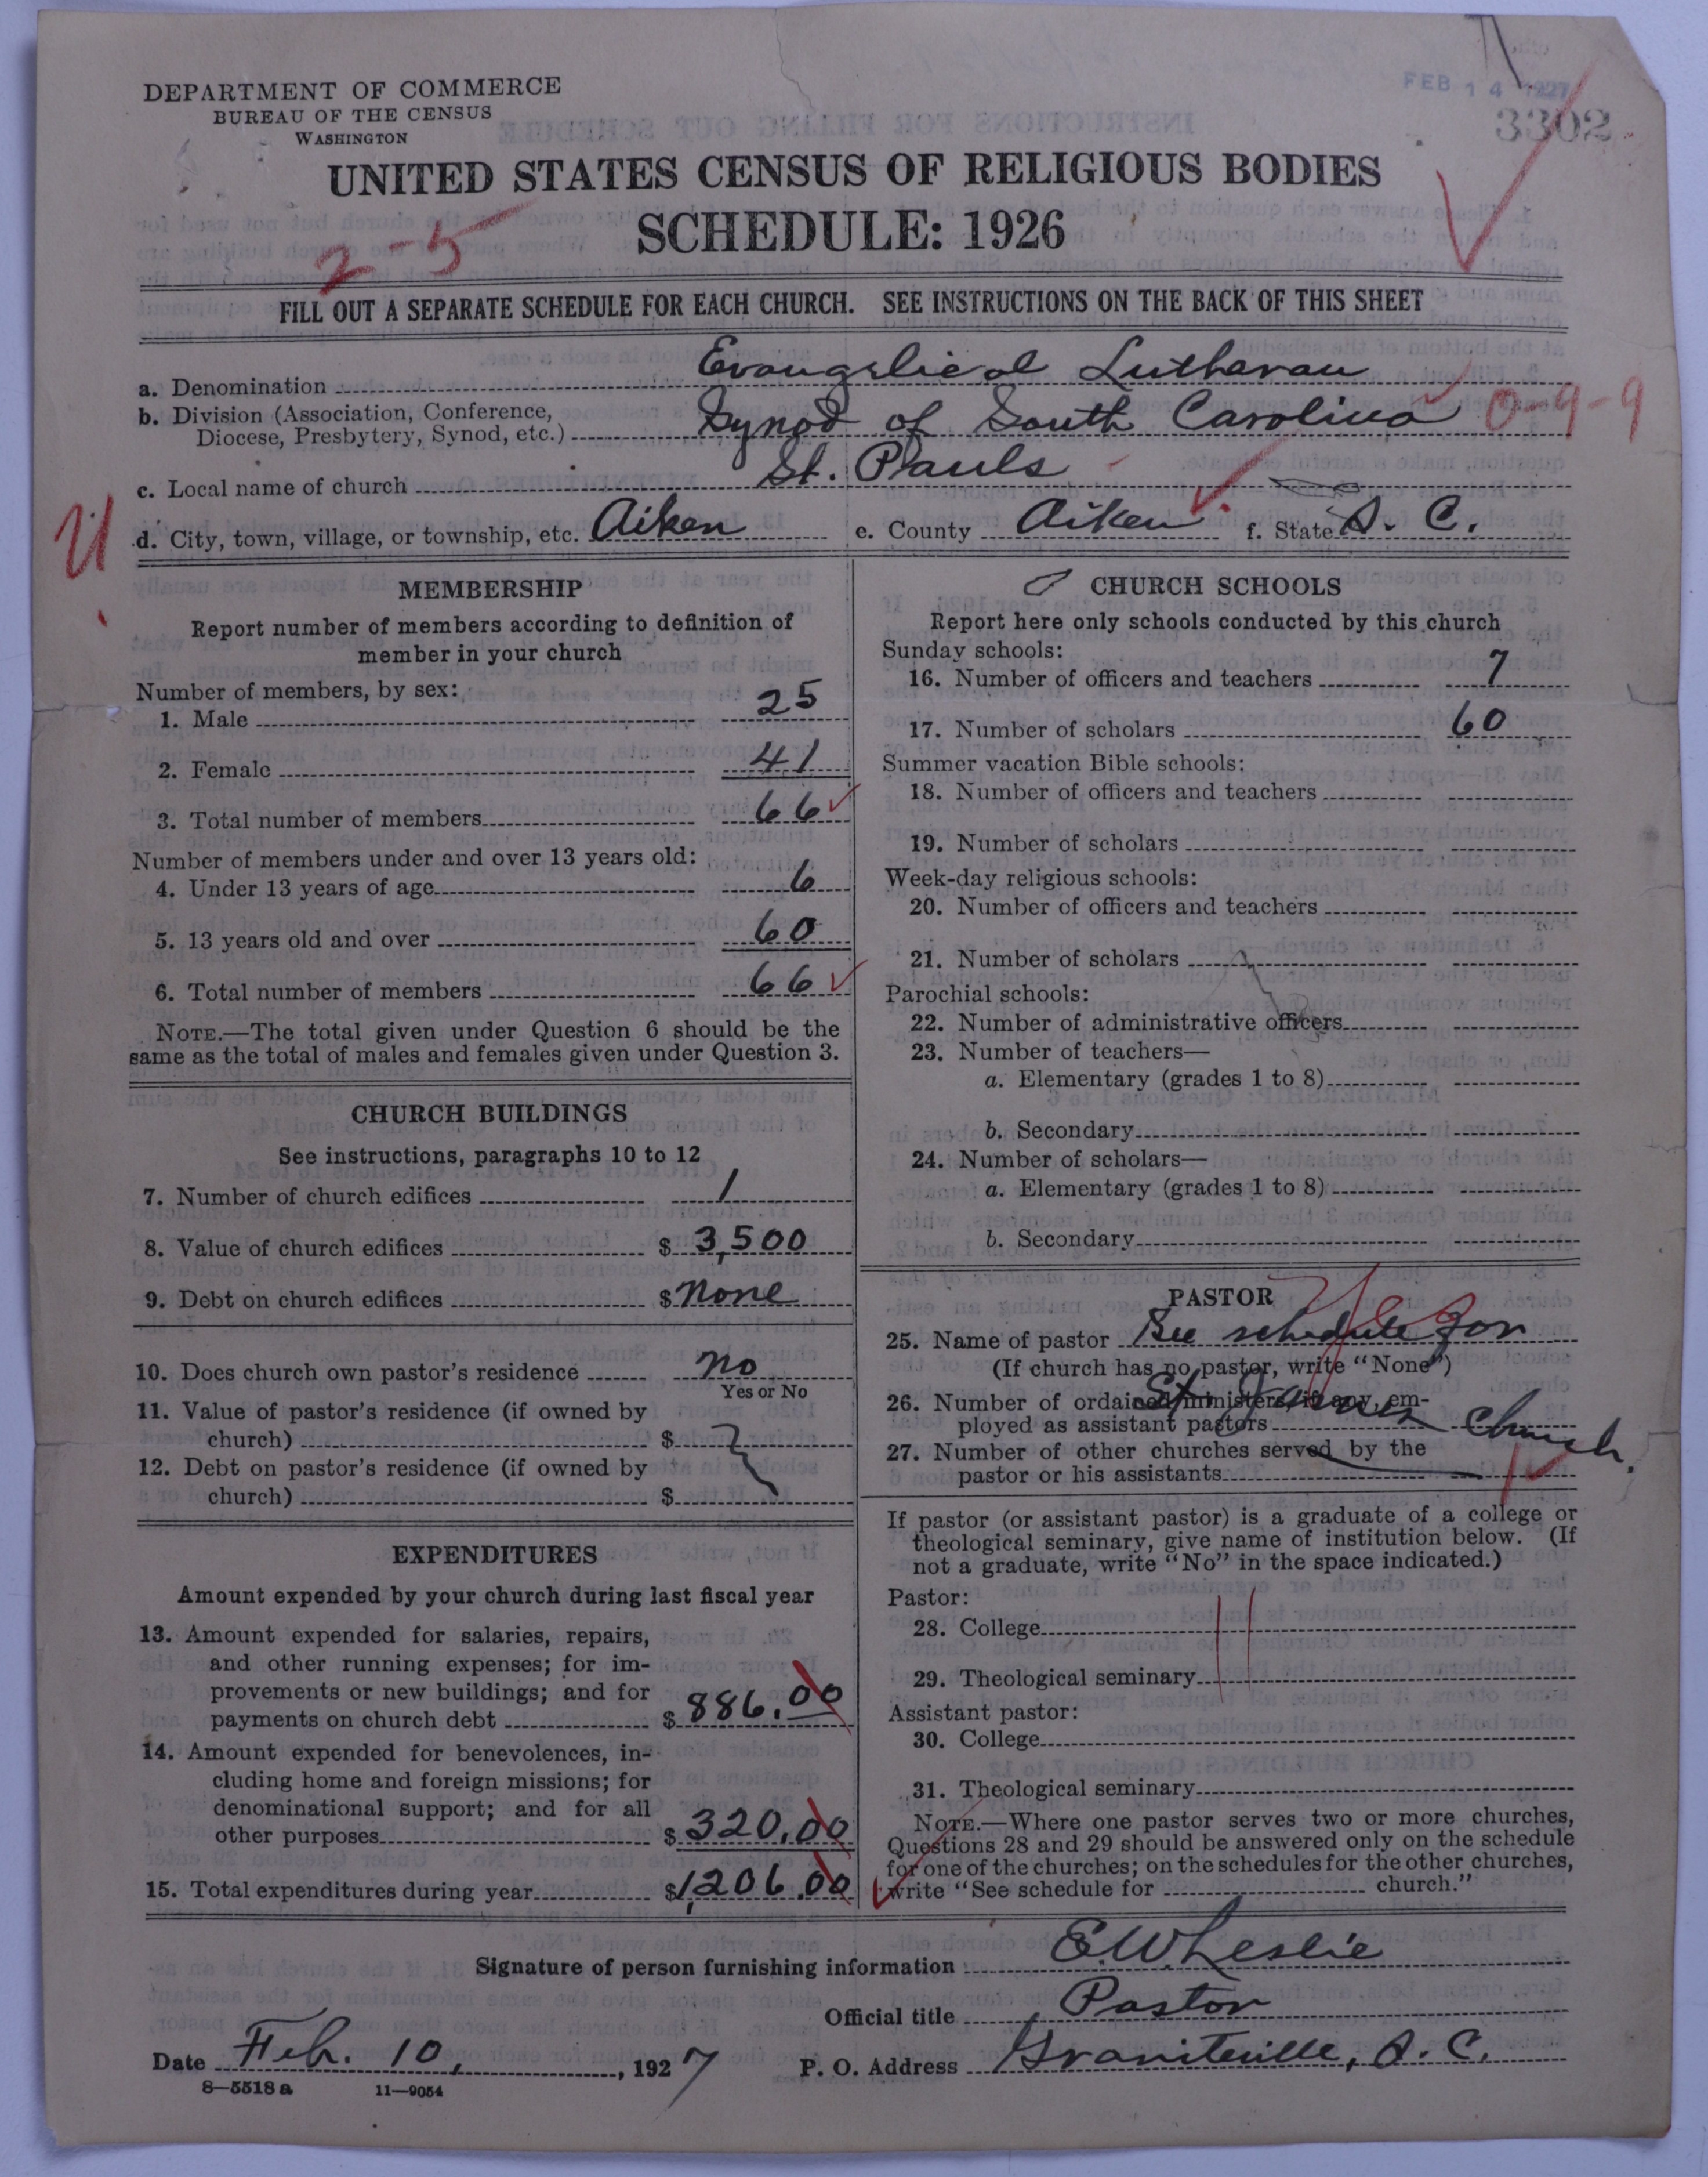 FEB 14 1927
3302
DEPARTMENT OF COMMERCE
BUREAU OF THE CENSUS
WASHINGTON
UNITED STATES CENSUS OF RELIGIOUS BODIES
SCHEDULE: 1926
2-5
FILL OUT A SEPARATE SCHEDULE FOR EACH CHURCH. SEE INSTRUCTIONS ON THE BACK OF THIS SHEET
a. Denomination Evangelical Lutheran
b. Division (Association, Conference,
Diocese, Presbytery, Synod, etc.) Synod of South Carolina 0-9-9
c. Local name of church St. Pauls
U
d. City, town, village, or township, etc. Aiken e. County Aiken f. State S. C.
MEMBERSHIP
Report number of members according to definition of
member in your church
Number of members, by sex:
1. Male 25
2. Female 41
3. Total number of members 66
Number of members under and over 13 years old:
4. Under 13 years of age 6
5. 13 years old and over 60
6. Total number of members 66
NOTE.—The total given under Question 6 should be the
same as the total of males and females given under Question 3.
CHURCH BUILDINGS
See instructions, paragraphs 10 to 12
7. Number of church edifices 1
8. Value of church edifices $ 3,500
9. Debt on church edifices $ none
10. Does church own pastor's residence no
Yes or No
11. Value of pastor's residence (if owned by
church) $
12. Debt on pastor's residence (if owned by
church) $
EXPENDITURES
Amount expended by your church during last fiscal year
13. Amount expended for salaries, repairs,
and other running expenses; for im-
provements or new buildings; and for
payments on church debt $ 886.00
14. Amount expended for benevolences, in-
cluding home and foreign missions; for
denominational support; and for all
other purposes $ 320.00
15. Total expenditures during year $ 1,206.00
CHURCH SCHOOLS
Report here only schools conducted by this church
Sunday schools:
16. Number of officers and teachers 7
17. Number of scholars 60
Summer vacation Bible schools:
18. Number of officers and teachers
19. Number of scholars
Week-day religious schools:
20. Number of officers and teachers
21. Number of scholars
Parochial schools:
22. Number of administrative officers
23. Number of teachers—
a. Elementary (grades 1 to 8)
b. Secondary
24. Number of scholars—
a. Elementary (grades 1 to 8)
b. Secondary
PASTOR
25. Name of pastor See schedule for
(If church has no pastor, write "None")
St. James Church.
26. Number of ordained ministers, if any, em-
ployed as assistant pastors
27. Number of other churches served by the
pastor or his assistants
If pastor (or assistant pastor) is a graduate of a college or
theological seminary, give name of institution below. (If
not a graduate, write "No" in the space indicated.)
Pastor:
28. College
29. Theological seminary
Assistant pastor:
30. College
31. Theological seminary
NOTE.—Where one pastor serves two or more churches,
Questions 28 and 29 should be answered only on the schedule
for one of the churches; on the schedules for the other churches,
write "See schedule for church."
Signature of person furnishing information E. W. Leslie
Official title Pastor
Date Feb. 10, 1927 P. O. Address Graniteville, S. C.
8—5518 a 11—9054